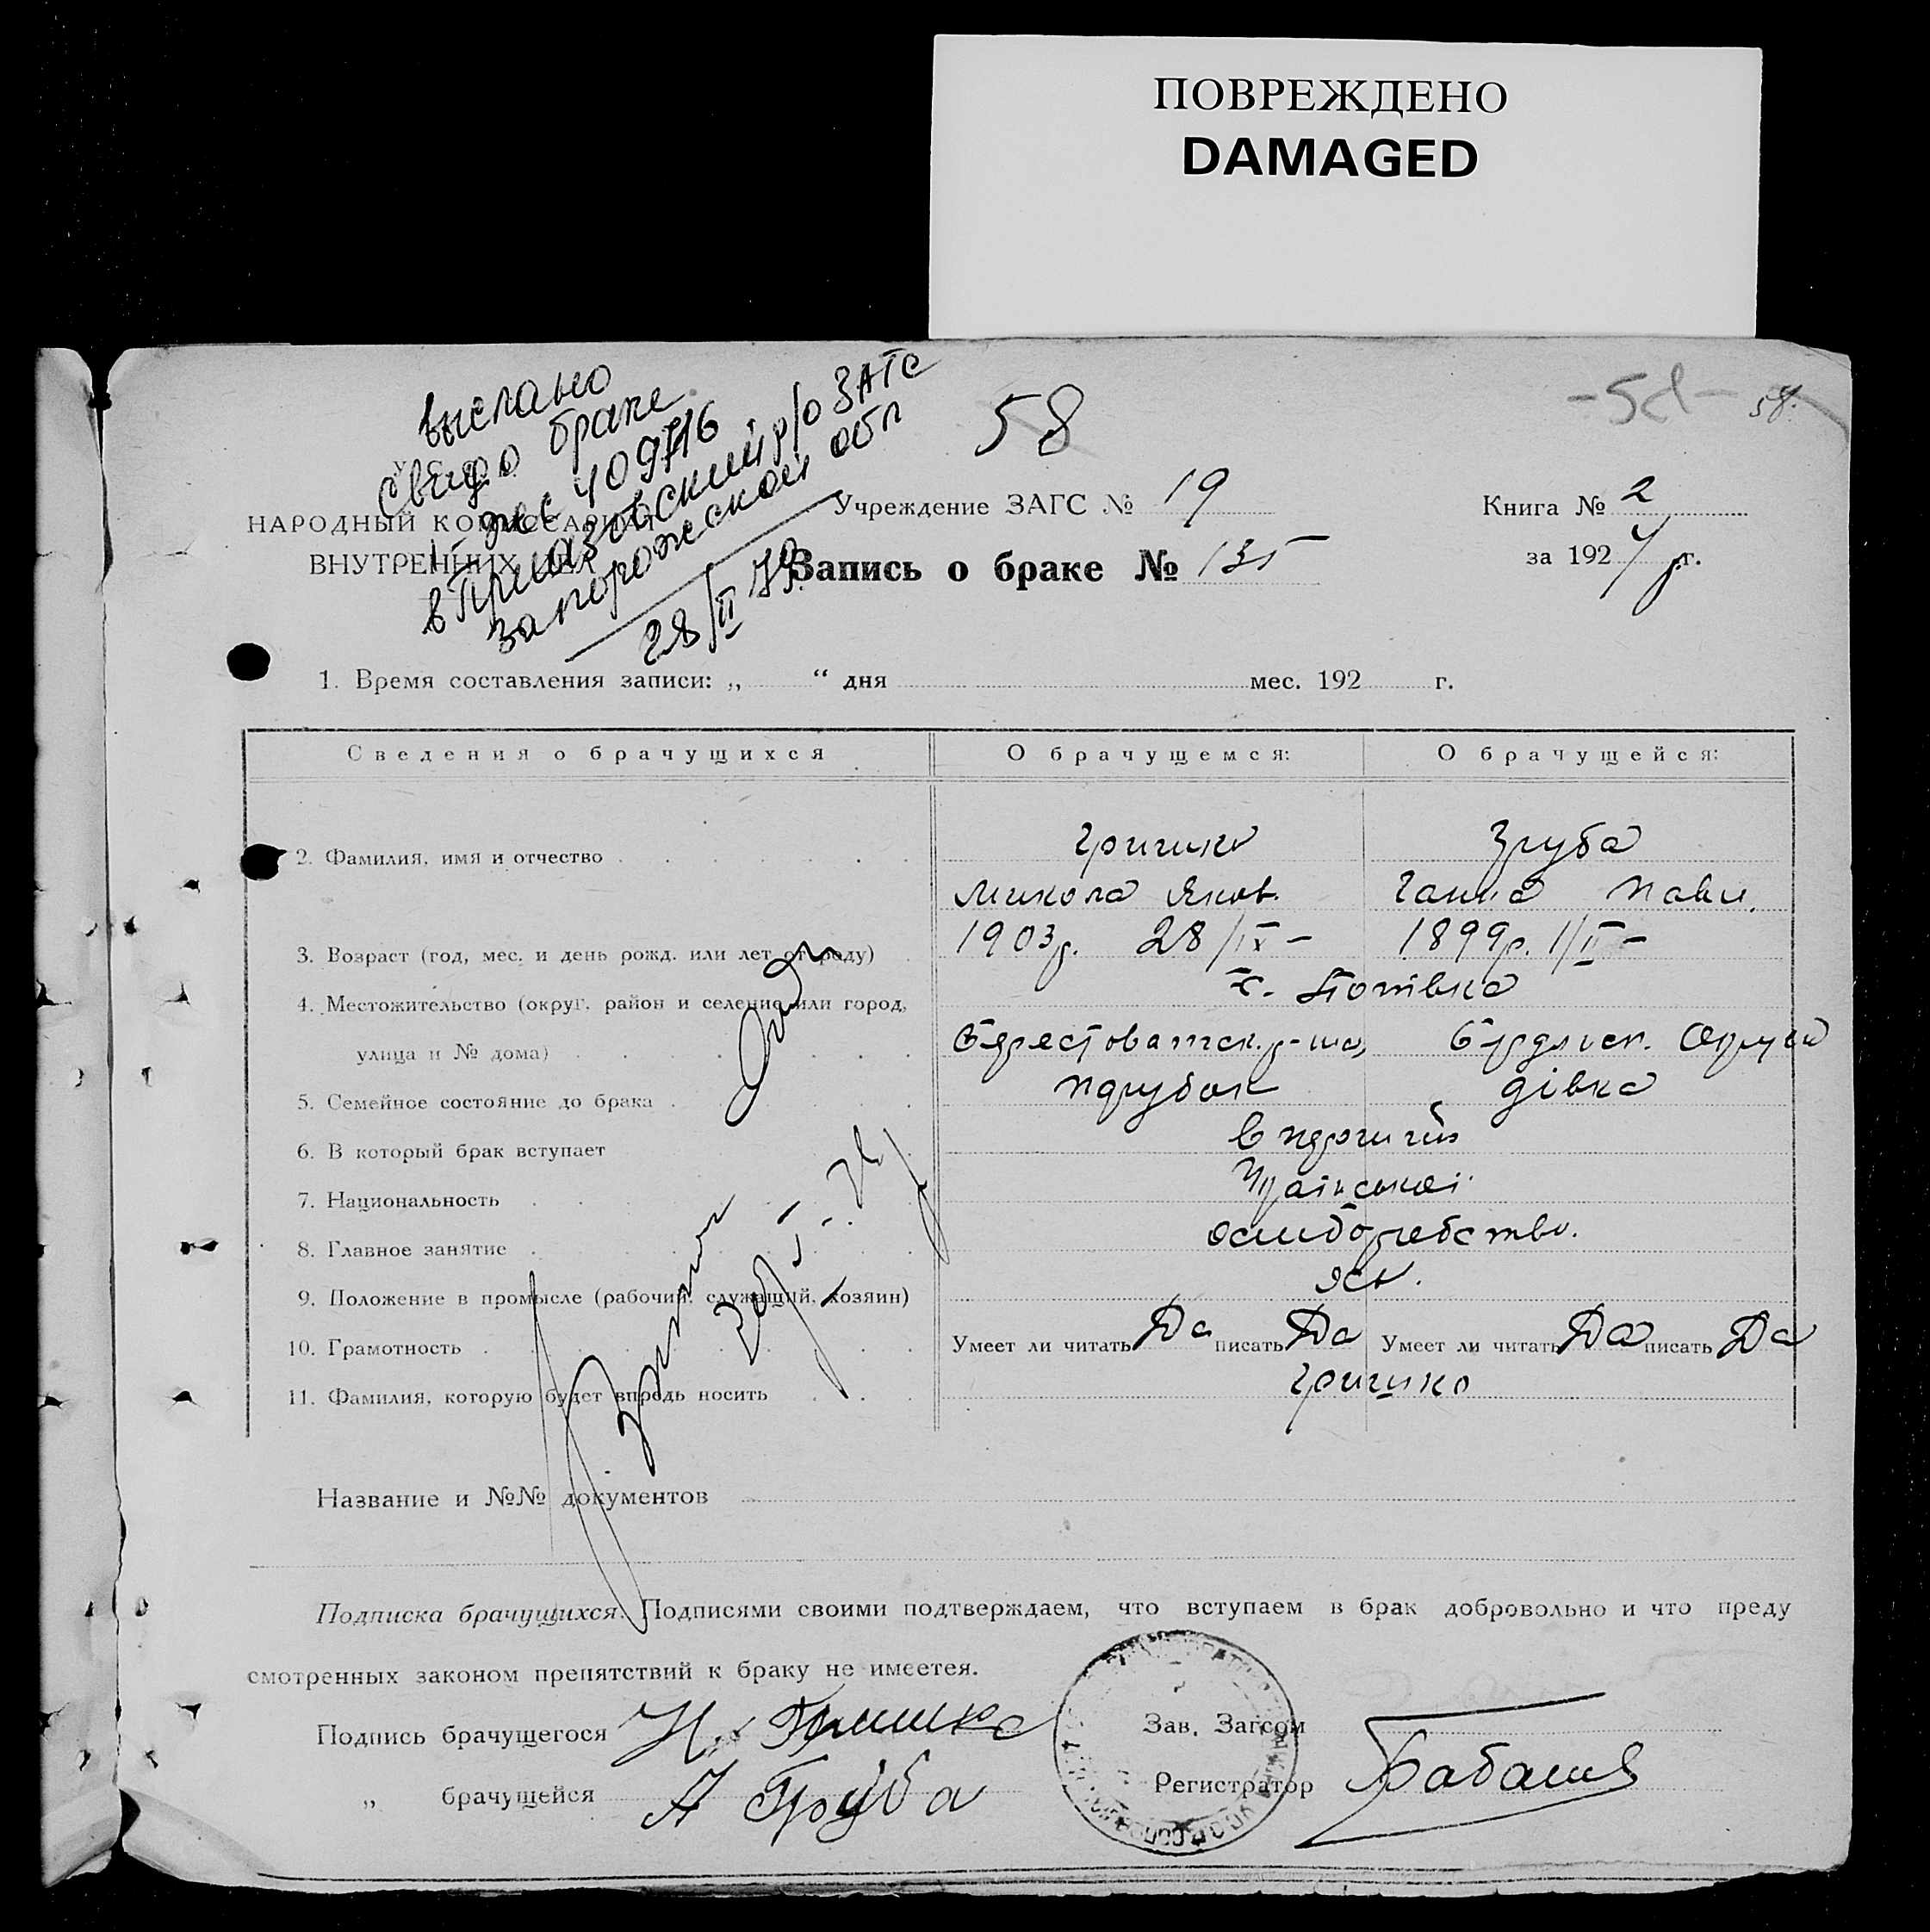 ПОВРЕЖДЕНО
DAMAGED
выслано
свид. о браке
409716
в Приазовский р/о ЗАГС
запорожской обл
28/II
58
58.
НАРОДНЫЙ КОМИССАРИАТ
ВНУТРЕННИХ ДЕЛ
Учреждение ЗАГС № 19
Книга № 2
Запись о браке № 135
за 192 г.
1. Время составления записи: „ “ дня мес. 192 г.
Сведения о брачущихся О брачущемся: О брачущейся:
2. Фамилия, имя и отчество Гришко Груба
Микола Яков. Ганна Павл.
3. Возраст (год, мес. и день рожд. или лет от роду) 1903р. 28/IX – 1899р. 1/II –
4. Местожительство (округ, район и селение или город,
улица и № дома) Берестоватск. р-на, Бердянск. Округи
5. Семейное состояние до брака парубок дівка
6. В который брак вступает в перший
7. Национальность
8. Главное занятие
9. Положение в промысле (рабочий, служащий, хозяин)
10. Грамотность Умеет ли читать Да писать Да Умеет ли читать Да писать Да
11. Фамилия, которую будет впредь носить Гришко
Название и №№ документов
Подписка брачущихся. Подписями своими подтверждаем, что вступаем в брак добровольно и что преду
смотренных законом препятствий к браку не имеетея.
Подпись брачущегося Н. Гришко
Зав. Загсом
„ брачущейся А Груба
Регистратор